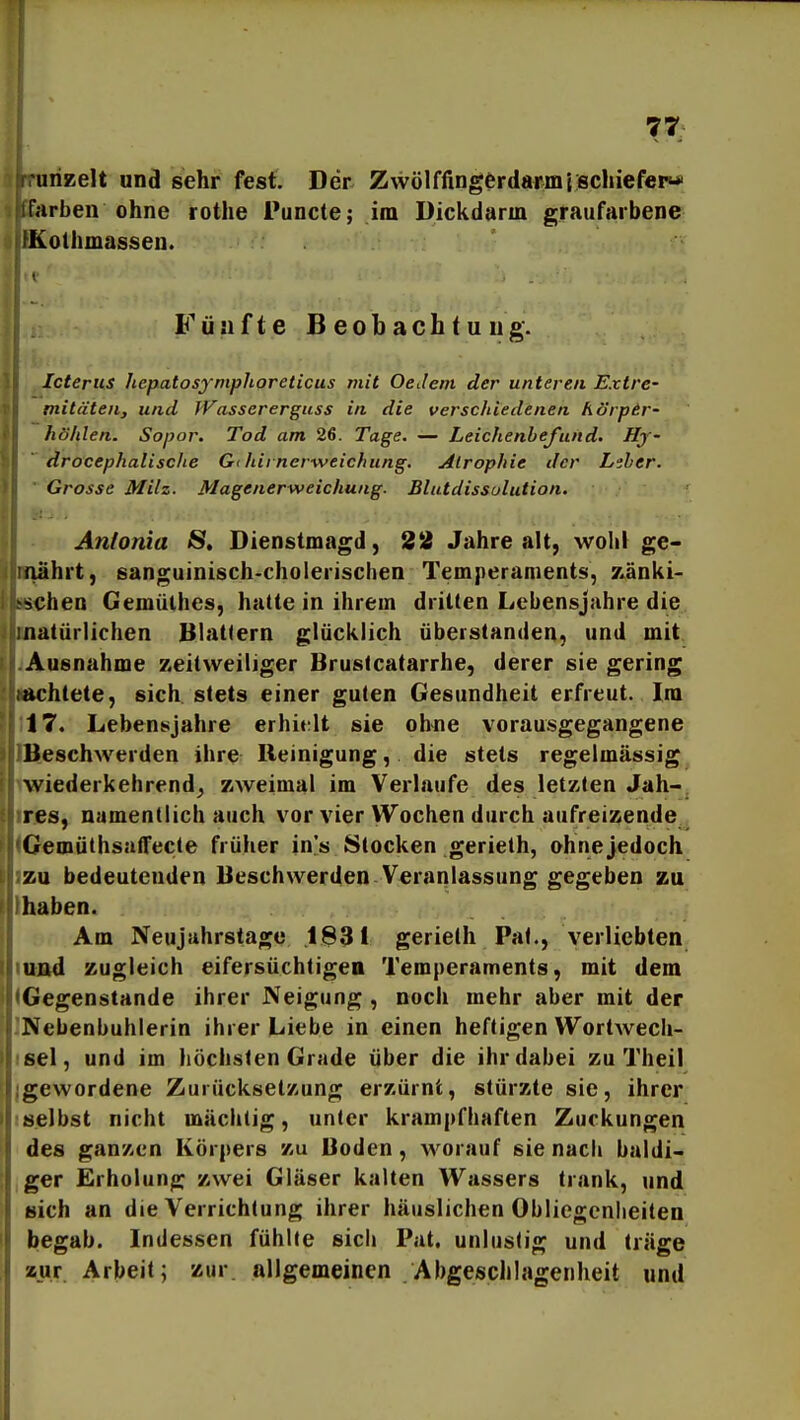 77
runzelt und sehr fest. Der Zwölffingerdarm schiefer-
farben ohne rothe Puncte; im Dickdarm graufarbene
Kothmassen.
Fünfte Beobachtung.
Icterus hepatosymphoreticus mit Oedem der unteren Extre-
mitäten, und Wassererguss in die verschiedenen Körper-
höhlen. Sopor. Tod am 26. Tage. — Leichenbefund. Hy-
drocephalische Gehirnerweichung. Atrophie der Leber.
Grosse Milz. Magenerweichung. Blutdissolution.
Antonia S. Dienstmagd, 22 Jahre alt, wohl ge-
nährt, sanguinisch-cholerischen Temperaments, zänki-
schen Gemüthes, hatte in ihrem dritten Lebensjahre die
natürlichen Blattern glücklich überstanden, und mit
Ausnahme zeitweiliger Brustcatarrhe, derer sie gering
achtete, sich stets einer guten Gesundheit erfreut. Im
17. Lebensjahre erhielt sie ohne vorausgegangene
Beschwerden ihre Reinigung, die stets regelmässig
wiederkehrend, zweimal im Verlaufe des letzten Jah-
res, namentlich auch vor vier Wochen durch aufreizende
Gemüthsaffecte früher in's Stocken gerieth, ohne jedoch
zu bedeutenden Beschwerden Veranlassung gegeben zu
haben.
Am Neujahrstage 1831 gerieth Pat., verliebten
und zugleich eifersüchtigen Temperaments, mit dem
Gegenstande ihrer Neigung, noch mehr aber mit der
Nebenbuhlerin ihrer Liebe in einen heftigen Wortwech-
sel, und im höchsten Grade über die ihr dabei zu Theil
gewordene Zurücksetzung erzürnt, stürzte sie, ihrer
selbst nicht mächtig, unter krampfhaften Zuckungen
des ganzen Körpers zu Boden, worauf sie nach baldi-
ger Erholung zwei Gläser kalten Wassers trank, und
sich an die Verrichtung ihrer häuslichen Obliegenheiten
begab. Indessen fühlte sich Pat. unlustig und träge
zur Arbeit; zur allgemeinen Abgeschlagenheit und